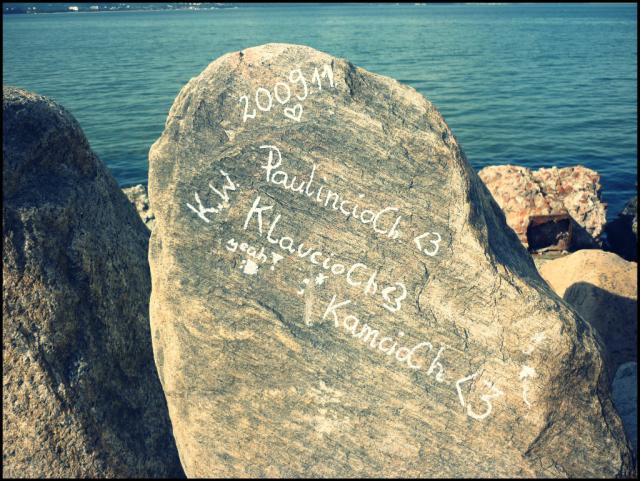 2009.11.
K.W.
PaulincioCh. <3
KlaucioCh <3
yeah!
KamcioCh <3